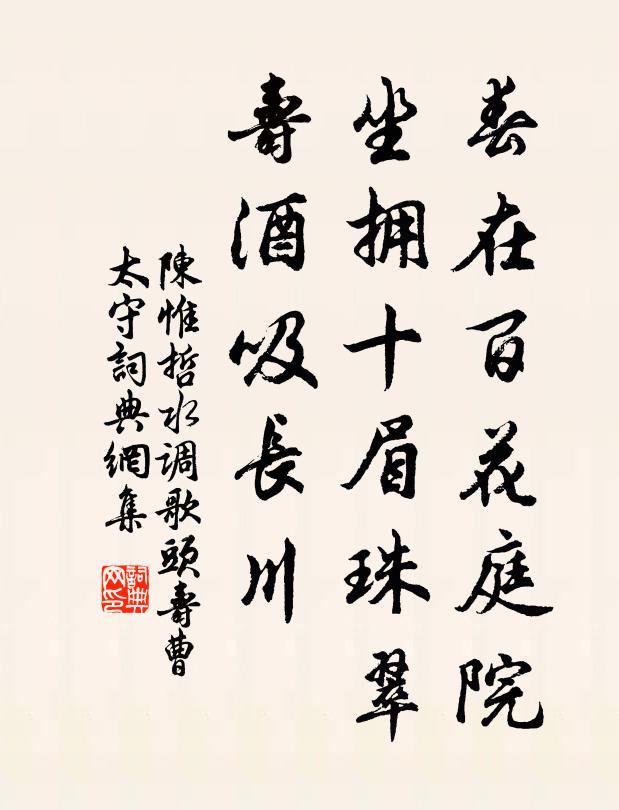 春在百花庭院
坐拥十眉珠翠
壽酒吸長川
陳惟哲水调歌頭壽曹
太守詞典網集
詞典网印